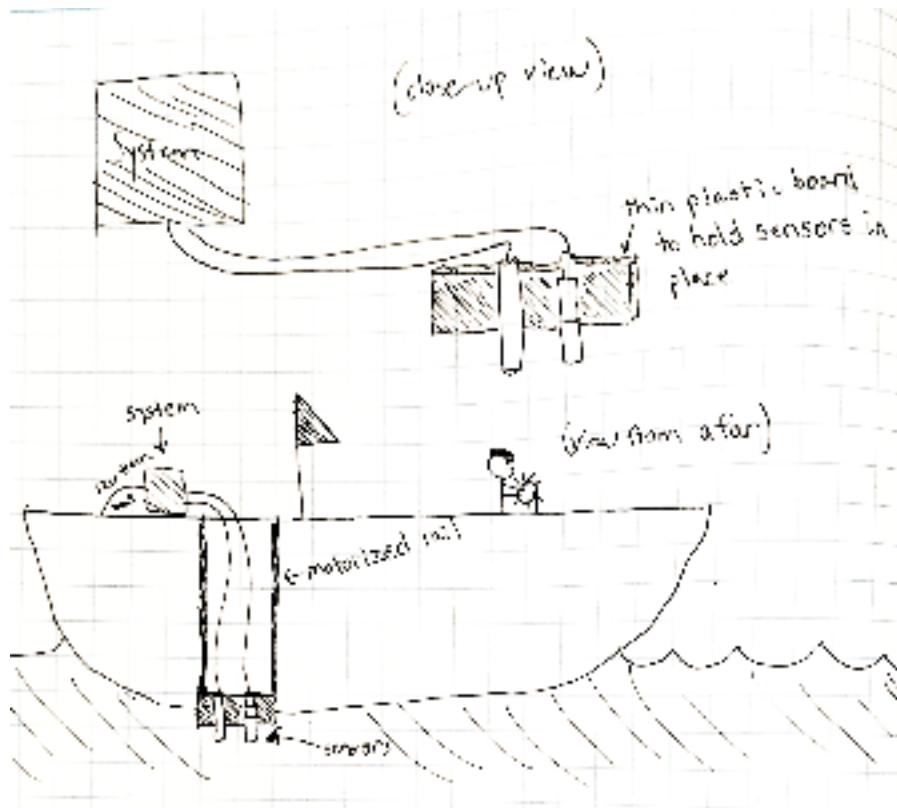 (close-up view)
System
thin plastic board
to hold sensors in
place
system
(view from afar)
motorized
sensors